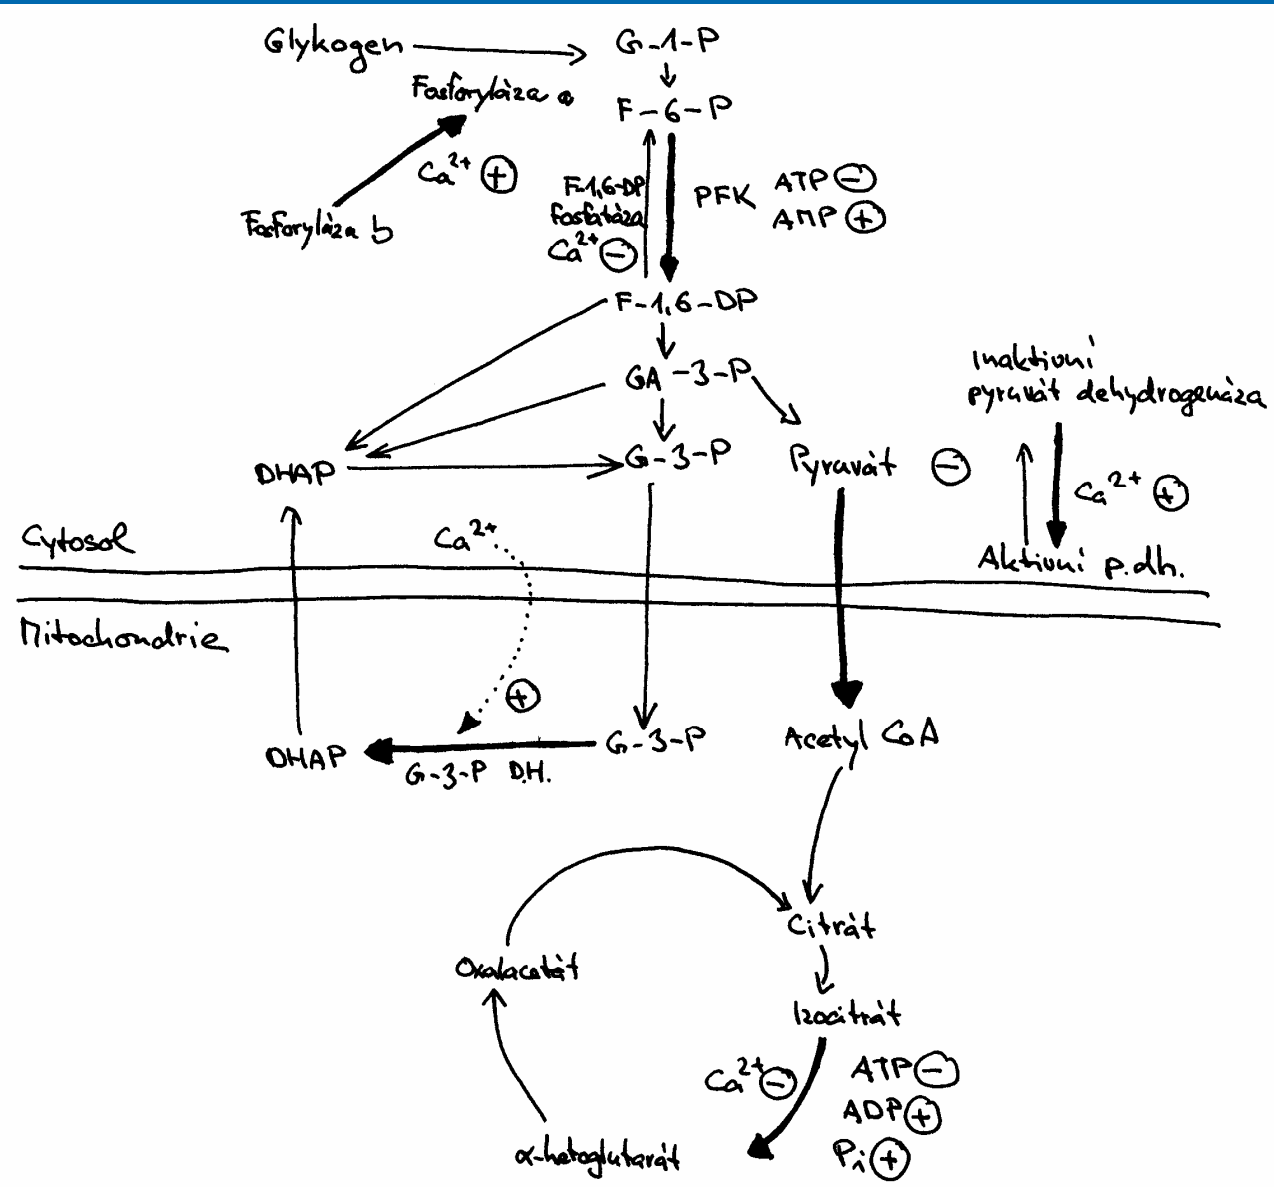 Glykogen
G-1-P
Fosforyláza a
F-6-P
Ca²⁺ +
Fosforyláza b
F-1,6-DP
fosfatáza
Ca²⁺ −
PFK
ATP −
AMP +
F-1,6-DP
GA-3-P
Inaktivní
pyruvát dehydrogenáza
DHAP
G-3-P
Pyruvát −
Ca²⁺ +
Cytosol
Ca²⁺
Aktivní p.dh.
Mitochondrie
+
DHAP
G-3-P
G-3-P D.H.
Acetyl CoA
Citrát
Oxalacetát
Izocitrát
Ca²⁺ −
ATP −
ADP +
Pi +
α-ketoglutarát